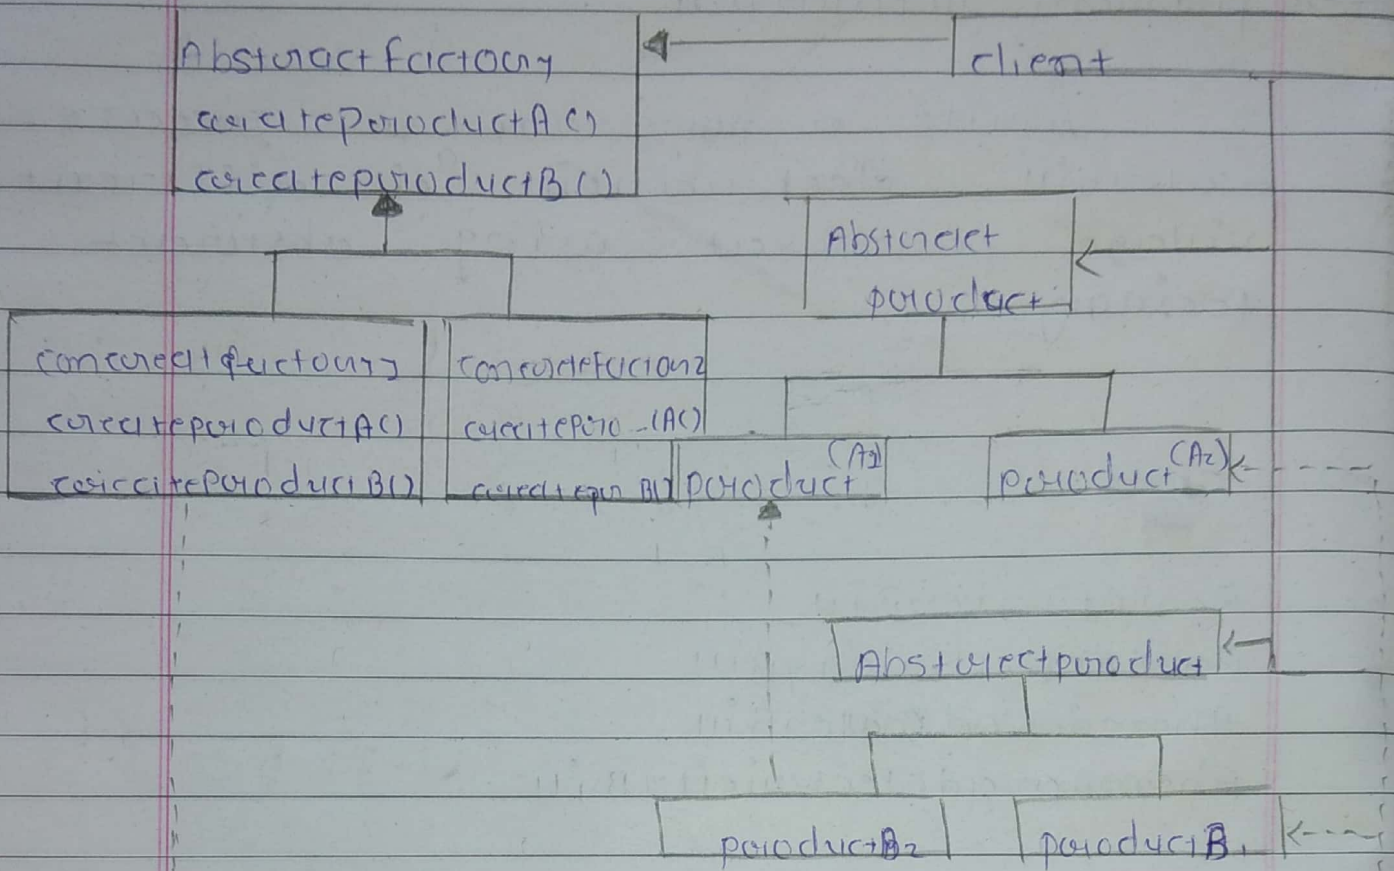 Abstract factory
client
createproductA()
createproductB()
Abstract
product
concreatfactory1
createproductA()
createproductB()
concretefactory2
createpro-(A()
createpro B()
product (A1)
product (A2)
Abstractproduct
productB2
productB1